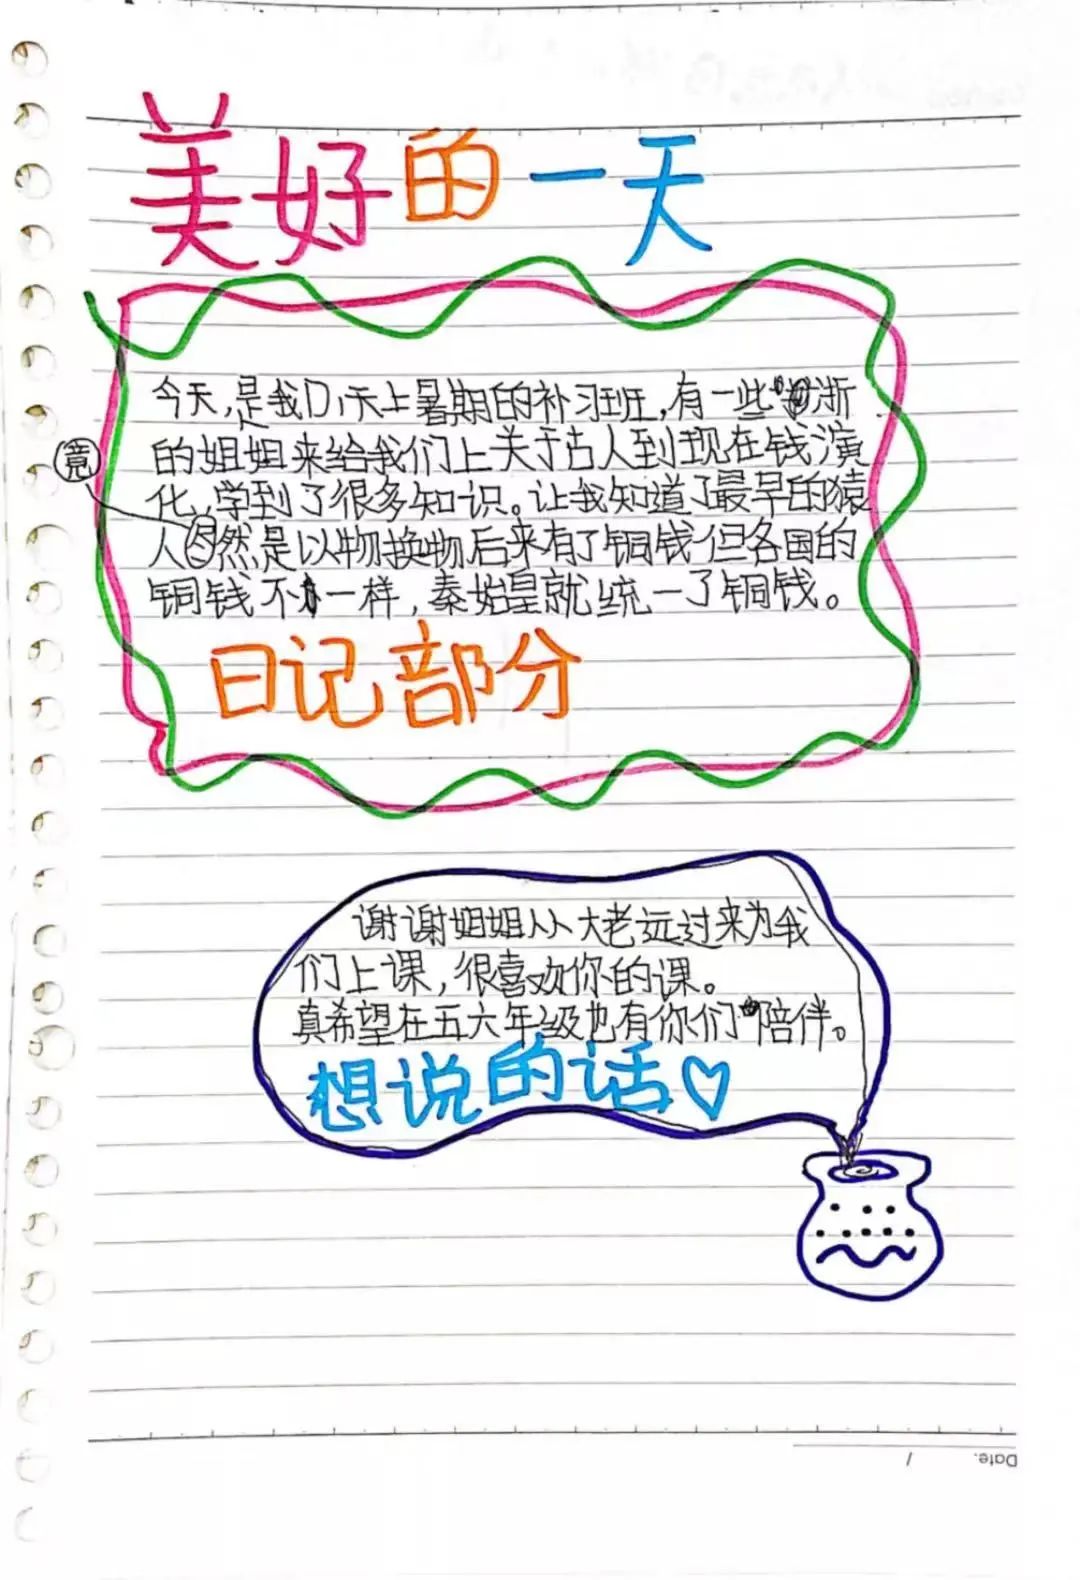 美好的一天
今天,是我们天上暑期的补习班,有一些浙
的姐姐来给我们上关于古人到现在钱演
化,学到了很多知识。让我知道了最早的猿
竟
人然是以物换物后来有了铜钱但各国的
铜钱不一样,秦始皇就统一了铜钱。
日记部分
谢谢姐姐从大老远过来为我
们上课,很喜欢你的课。
真希望在五六年级也有你们陪伴。
想说的话♡
Date. /